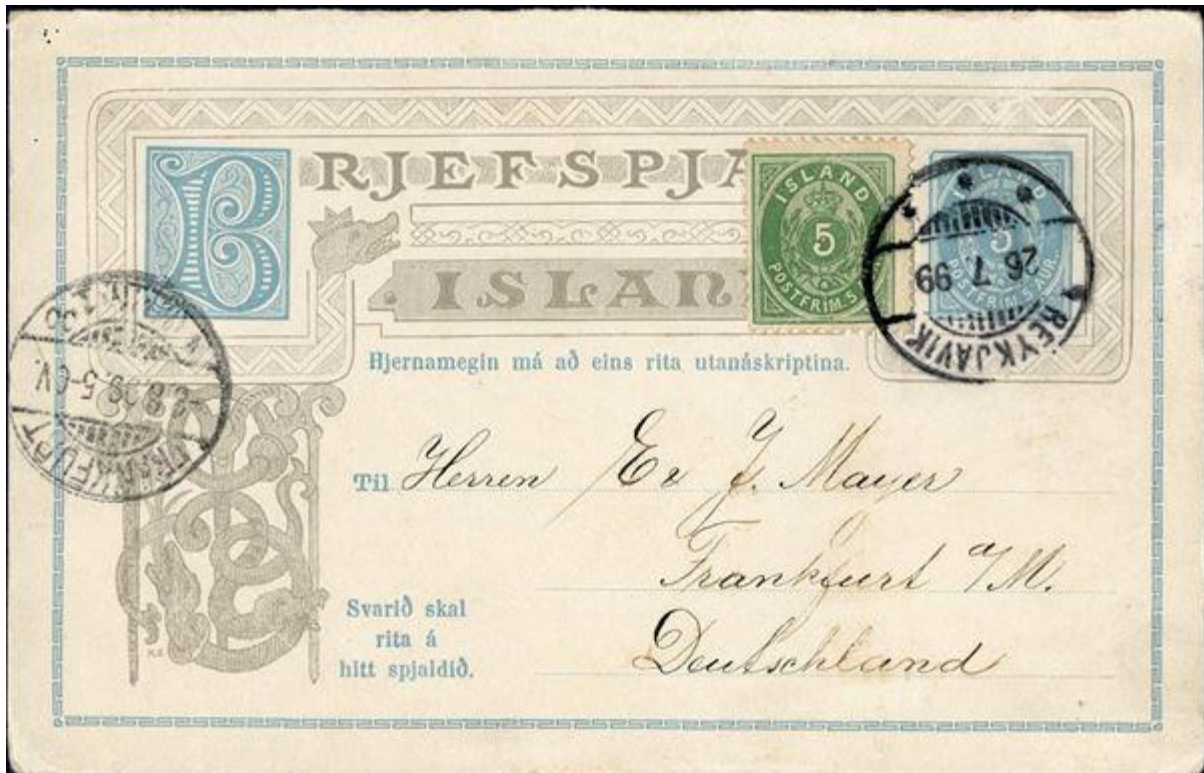 BRJEFSPJA
ISLAN
ISLAND
5
POSTFRIM. 5
ISLAND
5
POSTFRIM. 5 AUR.
REYKJAVIK
26. 7. 99
FRANKFURT
5-6N.
Hjernamegin má að eins rita utanáskriptina.
Til Herren J. Mayer
Frankfurt a/M.
Deutschland
Svarið skal
rita á
hitt spjaldið.